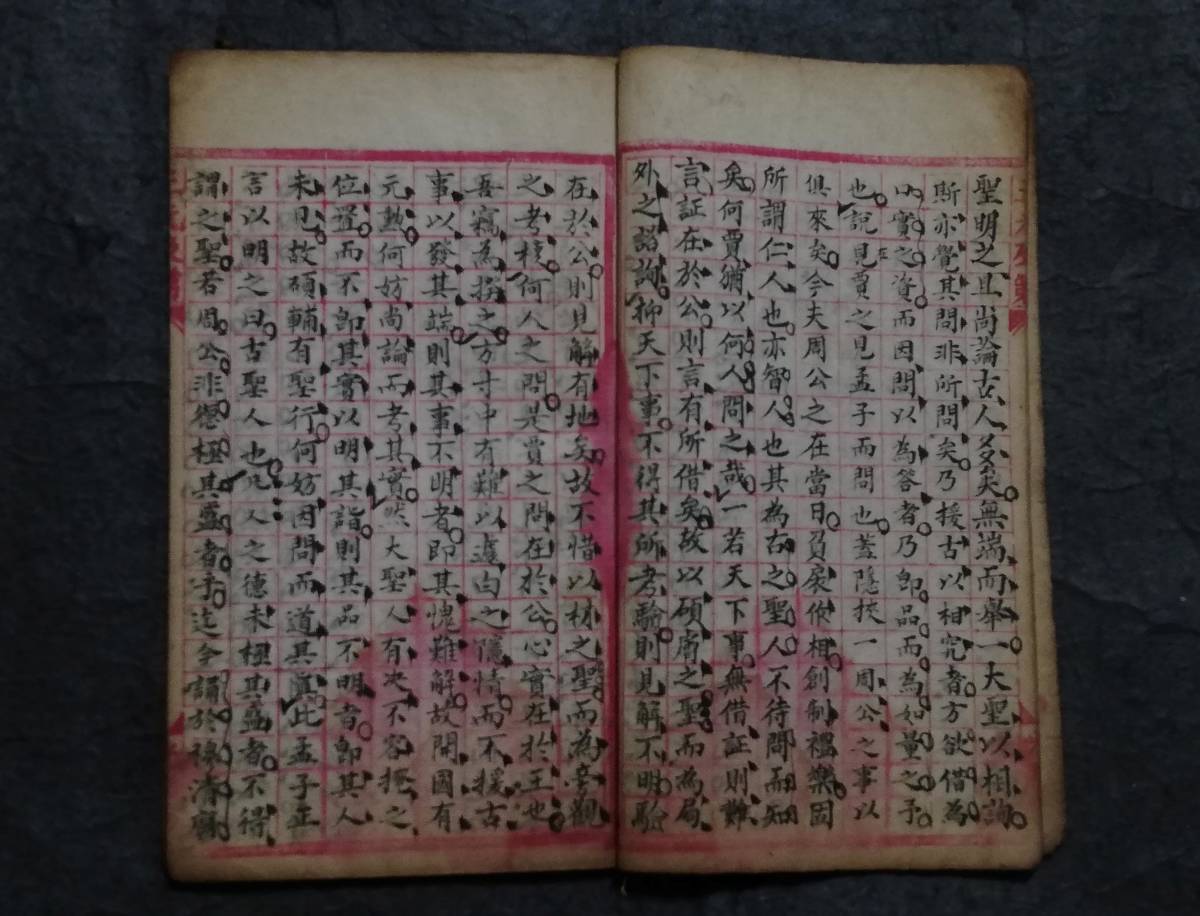 聖明之旦尚論古人多矣無端而舉一大聖以相詢
斯亦覺其問非所問矣乃援古以相究者方欲借為
以實之資而因問以為答者乃即品而為如量之予
也說見賈之見孟子而問也蓋隱挾一周公之事以
俱來矣今夫周公之在當日負扆作相創制禮樂固
所謂仁人也亦智人也其為古之聖人不待問而知
矣何賈猶以何人問之哉一若天下事無借証則難
言証在於公則言有所借矣故以碩膚之聖而為局
外之諮詢抑天下事不得其所考驗則見解不明驗
在於公則見解有地矣故不惜以材之聖而為旁觀
之考核何人之問是賈之問在於公心實在於王也
吾竊為揆之方寸中有難以遽白之隱情而不援古
事以發其端則其事不明者即其愧難解故開國有
元勲何妨尚論而考其實然大聖人有决不容掩之
位置而不即其實以明其詣則其品不明者即其人
未見故碩輔有聖行何妨因問而道其真此孟子正
言以明之曰古聖人也凡人之德未極其盛者不得
謂之聖若周公非德極其盛者乎迄今誦於穆清廟